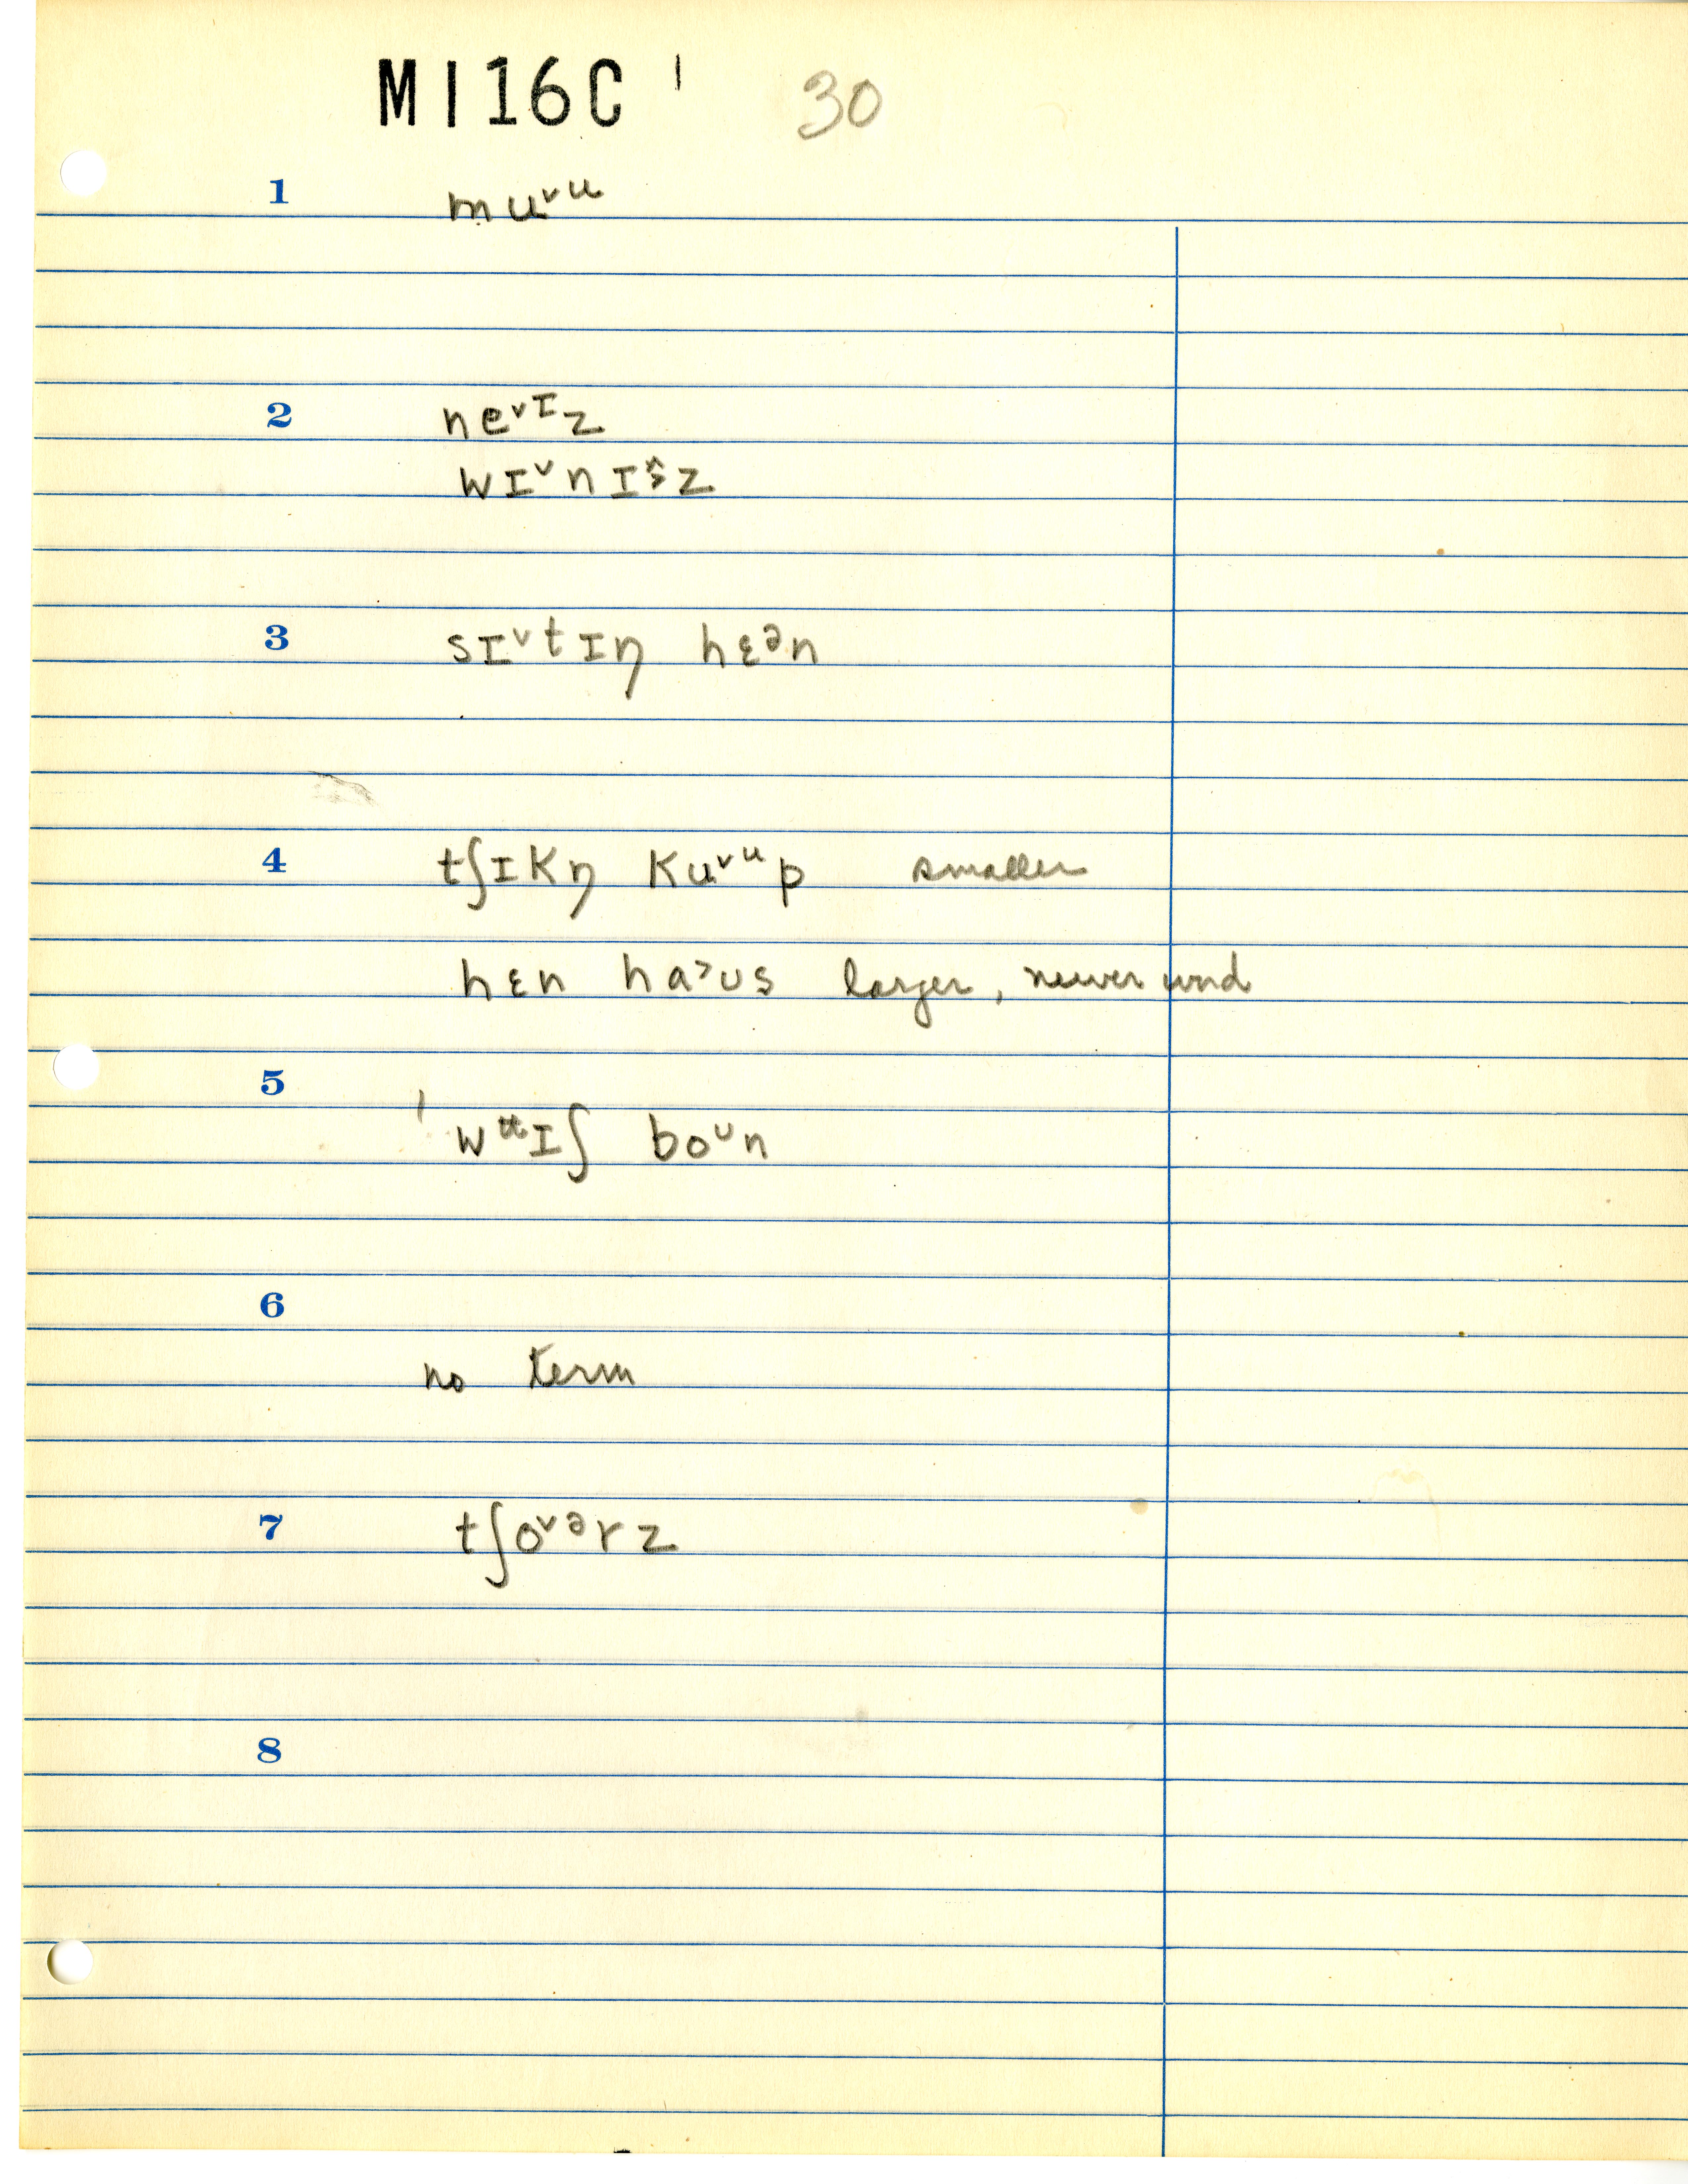 MI16C ' 30
1 muᵛᵘ
2 neᵛᶦz
wɪᵛnɪ^s̬z
3 sɪᵛtɪŋ hɛᵊn
4 tʃɪkŋ kuᵛᵘp smaller
hɛn ha˃ʊs larger, newer word
5
ˈ wɪʃ boᶷn
6
no term
7 tʃoᵛᵊrz
8